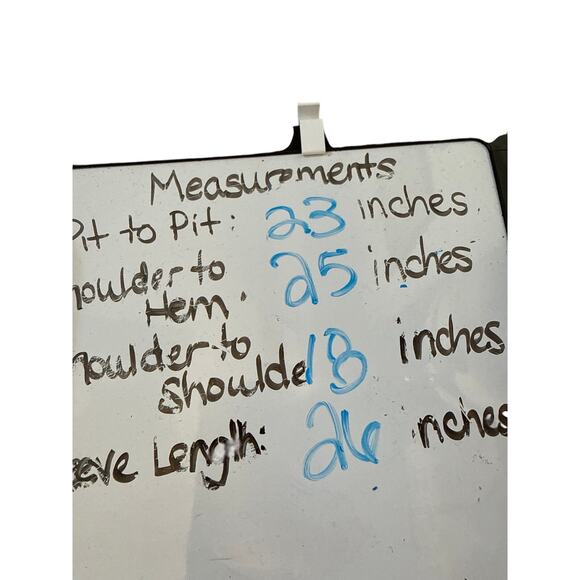 Measurements
Pit to Pit: 23 inches
houlder to 25 inches
Hem.
houlder to
Shoulde 18 inches
eeve Length: 26 nches